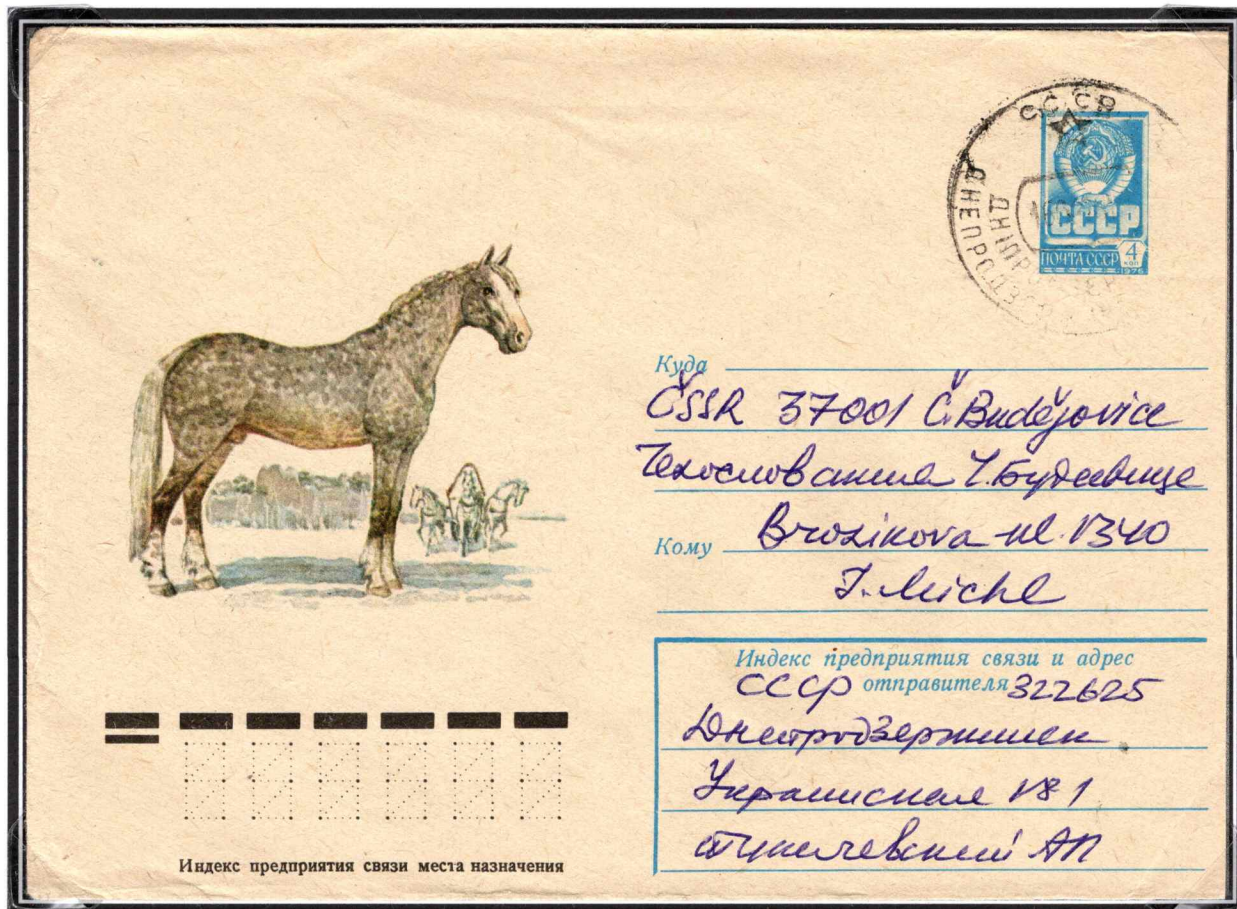 СССР
ДНЕПРОДЗЕ
СССР
ПОЧТА СССР 4 КОП
1976
Куда
ČSSR 37001 Č. Budějovice
Чехословакия Ч. Будеевице
Кому Brožikova ul. 1340
J. Michl
Индекс предприятия связи и адрес
СССР отправителя 322625
Днепродзержинск
Украинская
АП
Индекс предприятия связи места назначения